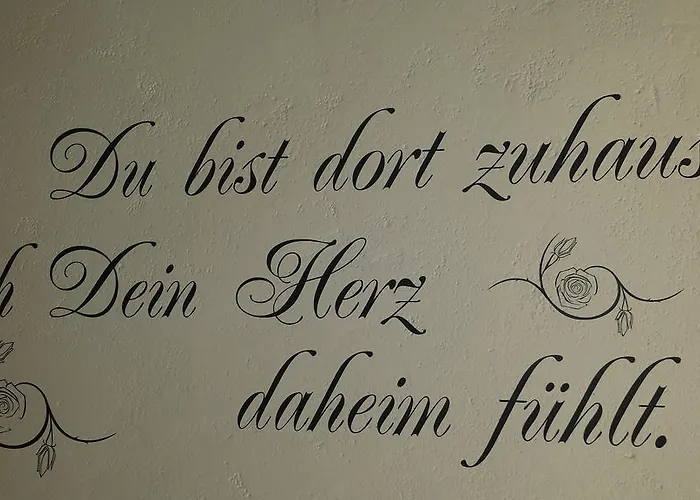 Du bist dort zuhaus
h Dein Herz
daheim fühlt.